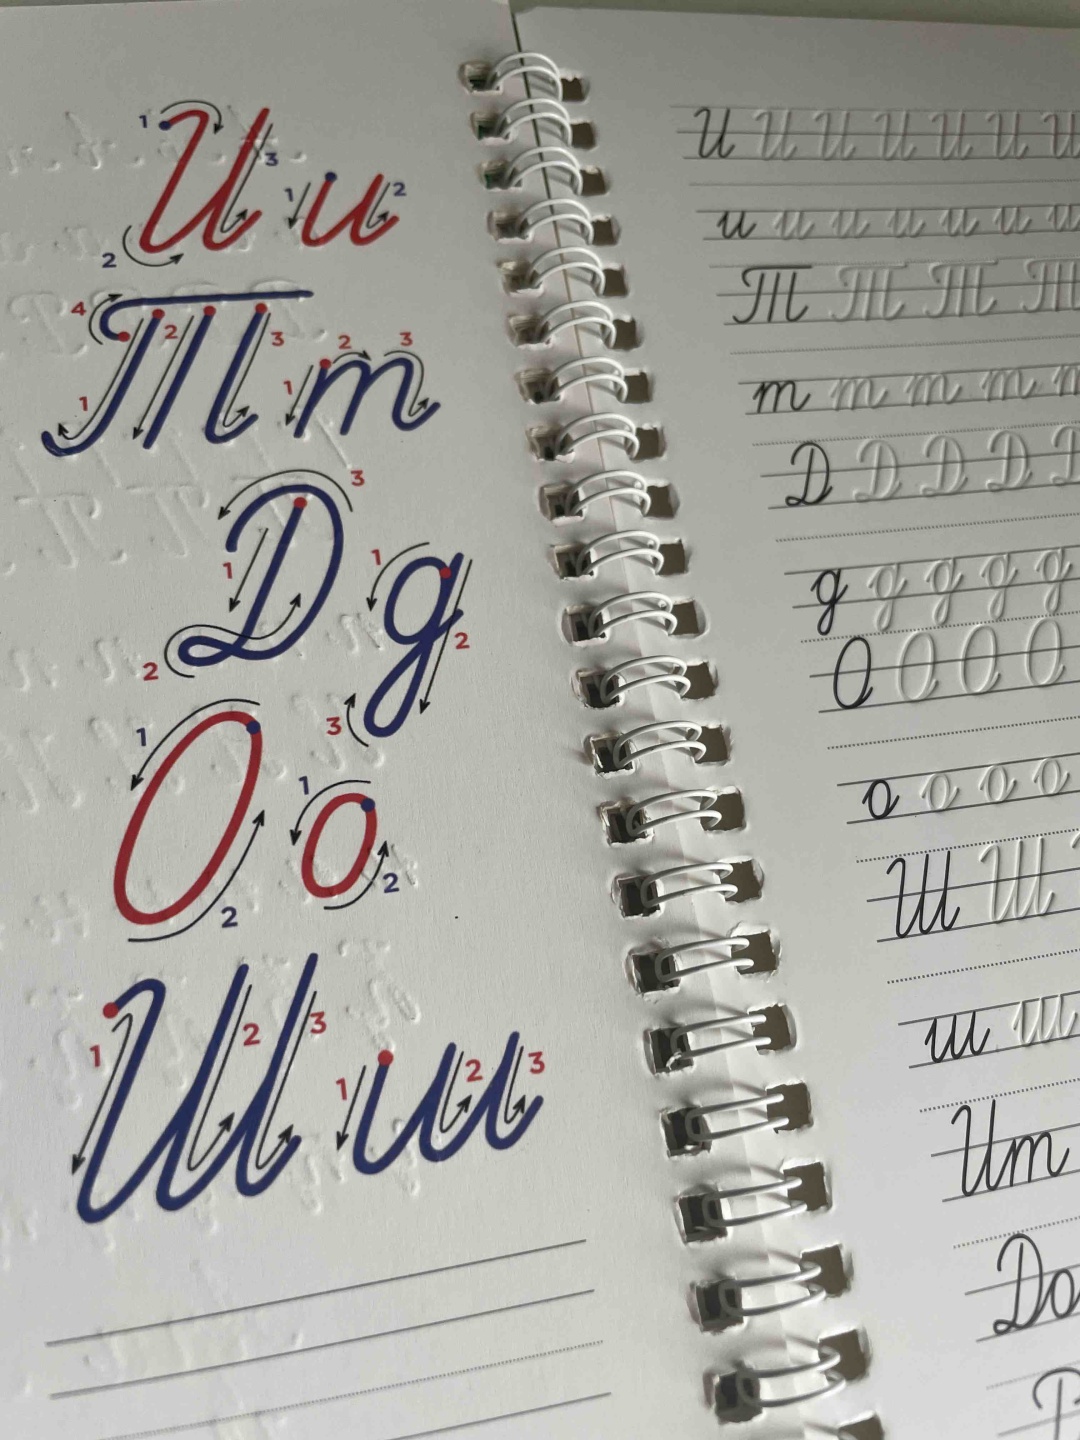 И и
1 2 3 1 2
Т т
4 2 3 1 1 2 3
Д д
3 1 2 1 2 3
О о
1 2 1 2
Ш ш
1 2 3 1 2 3
И И И И И И И
и и и и и и и
Т Т Т Т
т т т т т
Д Д Д Д Д
д д д д д
О О О О
о о о о
Ш Ш
ш ш
Ит
До